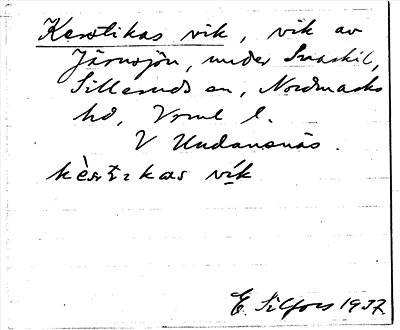 Kerstikas vik, vik av
Järnsjön, under Svaskil,
Silleruds sn, Nordmarks
hd, Vrml l.
V Undanenäs.
kèsṭıkas vík
E. Silfors 1937